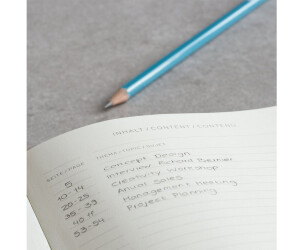 INHALT / CONTENT / CONTENU
SEITE / PAGE THEME / TOPIC / SUJET
5 Concept Design
10-14 Interview Richard Berner
20-25 Creativity Workshop
35-39 Annual Sales
40 ff Management Meeting
53-54 Project Planning